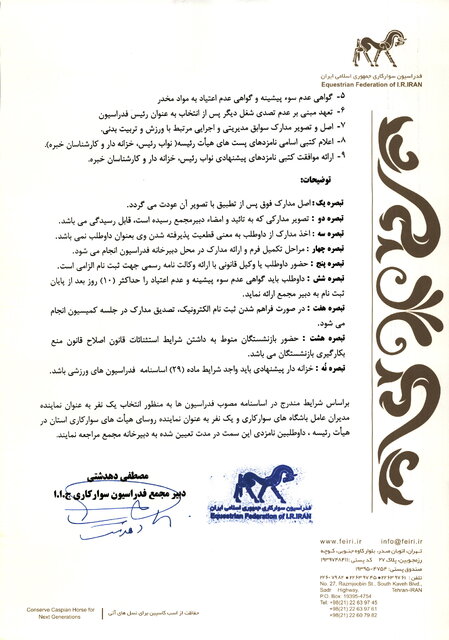 فدراسیون سوارکاری جمهوری اسلامی ایران
Equestrian Federation of I.R.IRAN
۵- گواهی عدم سوء پیشینه و گواهی عدم اعتیاد به مواد مخدر
۶- تعهد مبنی بر عدم تصدی شغل دیگر پس از انتخاب به عنوان رئیس فدراسیون
۷- اصل و تصویر مدارک سوابق مدیریتی و اجرایی مرتبط با ورزش و تربیت بدنی.
۸- اعلام کتبی اسامی نامزدهای پست های هیأت رئیسه( نواب رئیس، خزانه دار و کارشناسان خبره).
۹- ارائه موافقت کتبی نامزدهای پیشنهادی نواب رئیس، خزانه دار و کارشناسان خبره.
توضیحات:
تبصره یک: اصل مدارک فوق پس از تطبیق با تصویر آن عودت می گردد.
تبصره دو : تصویر مدارکی که به تائید و امضاء دبیرمجمع رسیده است، قابل رسیدگی می باشد.
تبصره سه : اخذ مدارک از داوطلب به معنی قطعیت پذیرفته شدن وی بعنوان داوطلب نمی باشد.
تبصره چهار : مراحل تکمیل فرم و ارائه مدارک در محل دبیرخانه فدراسیون انجام می شود.
تبصره پنج : حضور داوطلب یا وکیل قانونی با ارائه وکالت نامه رسمی جهت ثبت نام الزامی است.
تبصره شش : داوطلب باید گواهی عدم سوء پیشینه و عدم اعتیاد را حداکثر (۱۰) روز بعد از پایان
ثبت نام به دبیر مجمع ارائه نماید.
تبصره هفت : در صورت فراهم شدن ثبت نام الکترونیک، تصدیق مدارک در جلسه کمیسیون انجام
می شود.
تبصره هشت : حضور بازنشستگان منوط به داشتن شرایط استثنائات قانون اصلاح قانون منع
بکارگیری بازنشستگان می باشد.
تبصره نُه : خزانه دار پیشنهادی باید واجد شرایط ماده (۲۹) اساسنامه فدراسیون های ورزشی باشد.
براساس شرایط مندرج در اساسنامه مصوب فدراسیون ها به منظور انتخاب یک نفر به عنوان نماینده
مدیران عامل باشگاه های سوارکاری و یک نفر به عنوان نماینده روسای هیأت های سوارکاری استان در
هیأت رئیسه ، داوطلبین نامزدی این سمت در مدت تعیین شده به دبیرخانه مجمع مراجعه نمایند.
مصطفی دهدشتی
دبیر مجمع فدراسیون سوارکاری ج.ا.ا
فدراسیون سوارکاری جمهوری اسلامی ایران
Equestrian Federation of I.R.IRAN
www.feiri.ir info@feiri.ir
صندوق پستی: ۴۷۵۴-۱۹۳۹۵
No. 27, Razmjoobin St., South Kaveh Blwd.,
Sadr Highway, Tehran-IRAN
P.O. Box: 19395-4754
Tel: +98(21) 22 63 97 45
+98(21) 22 63 97 61
Fax: +98(21) 22 60 79 82
Conserve Caspian Horse for
Next Generations
حفاظت از اسب کاسپین برای نسل های آتی